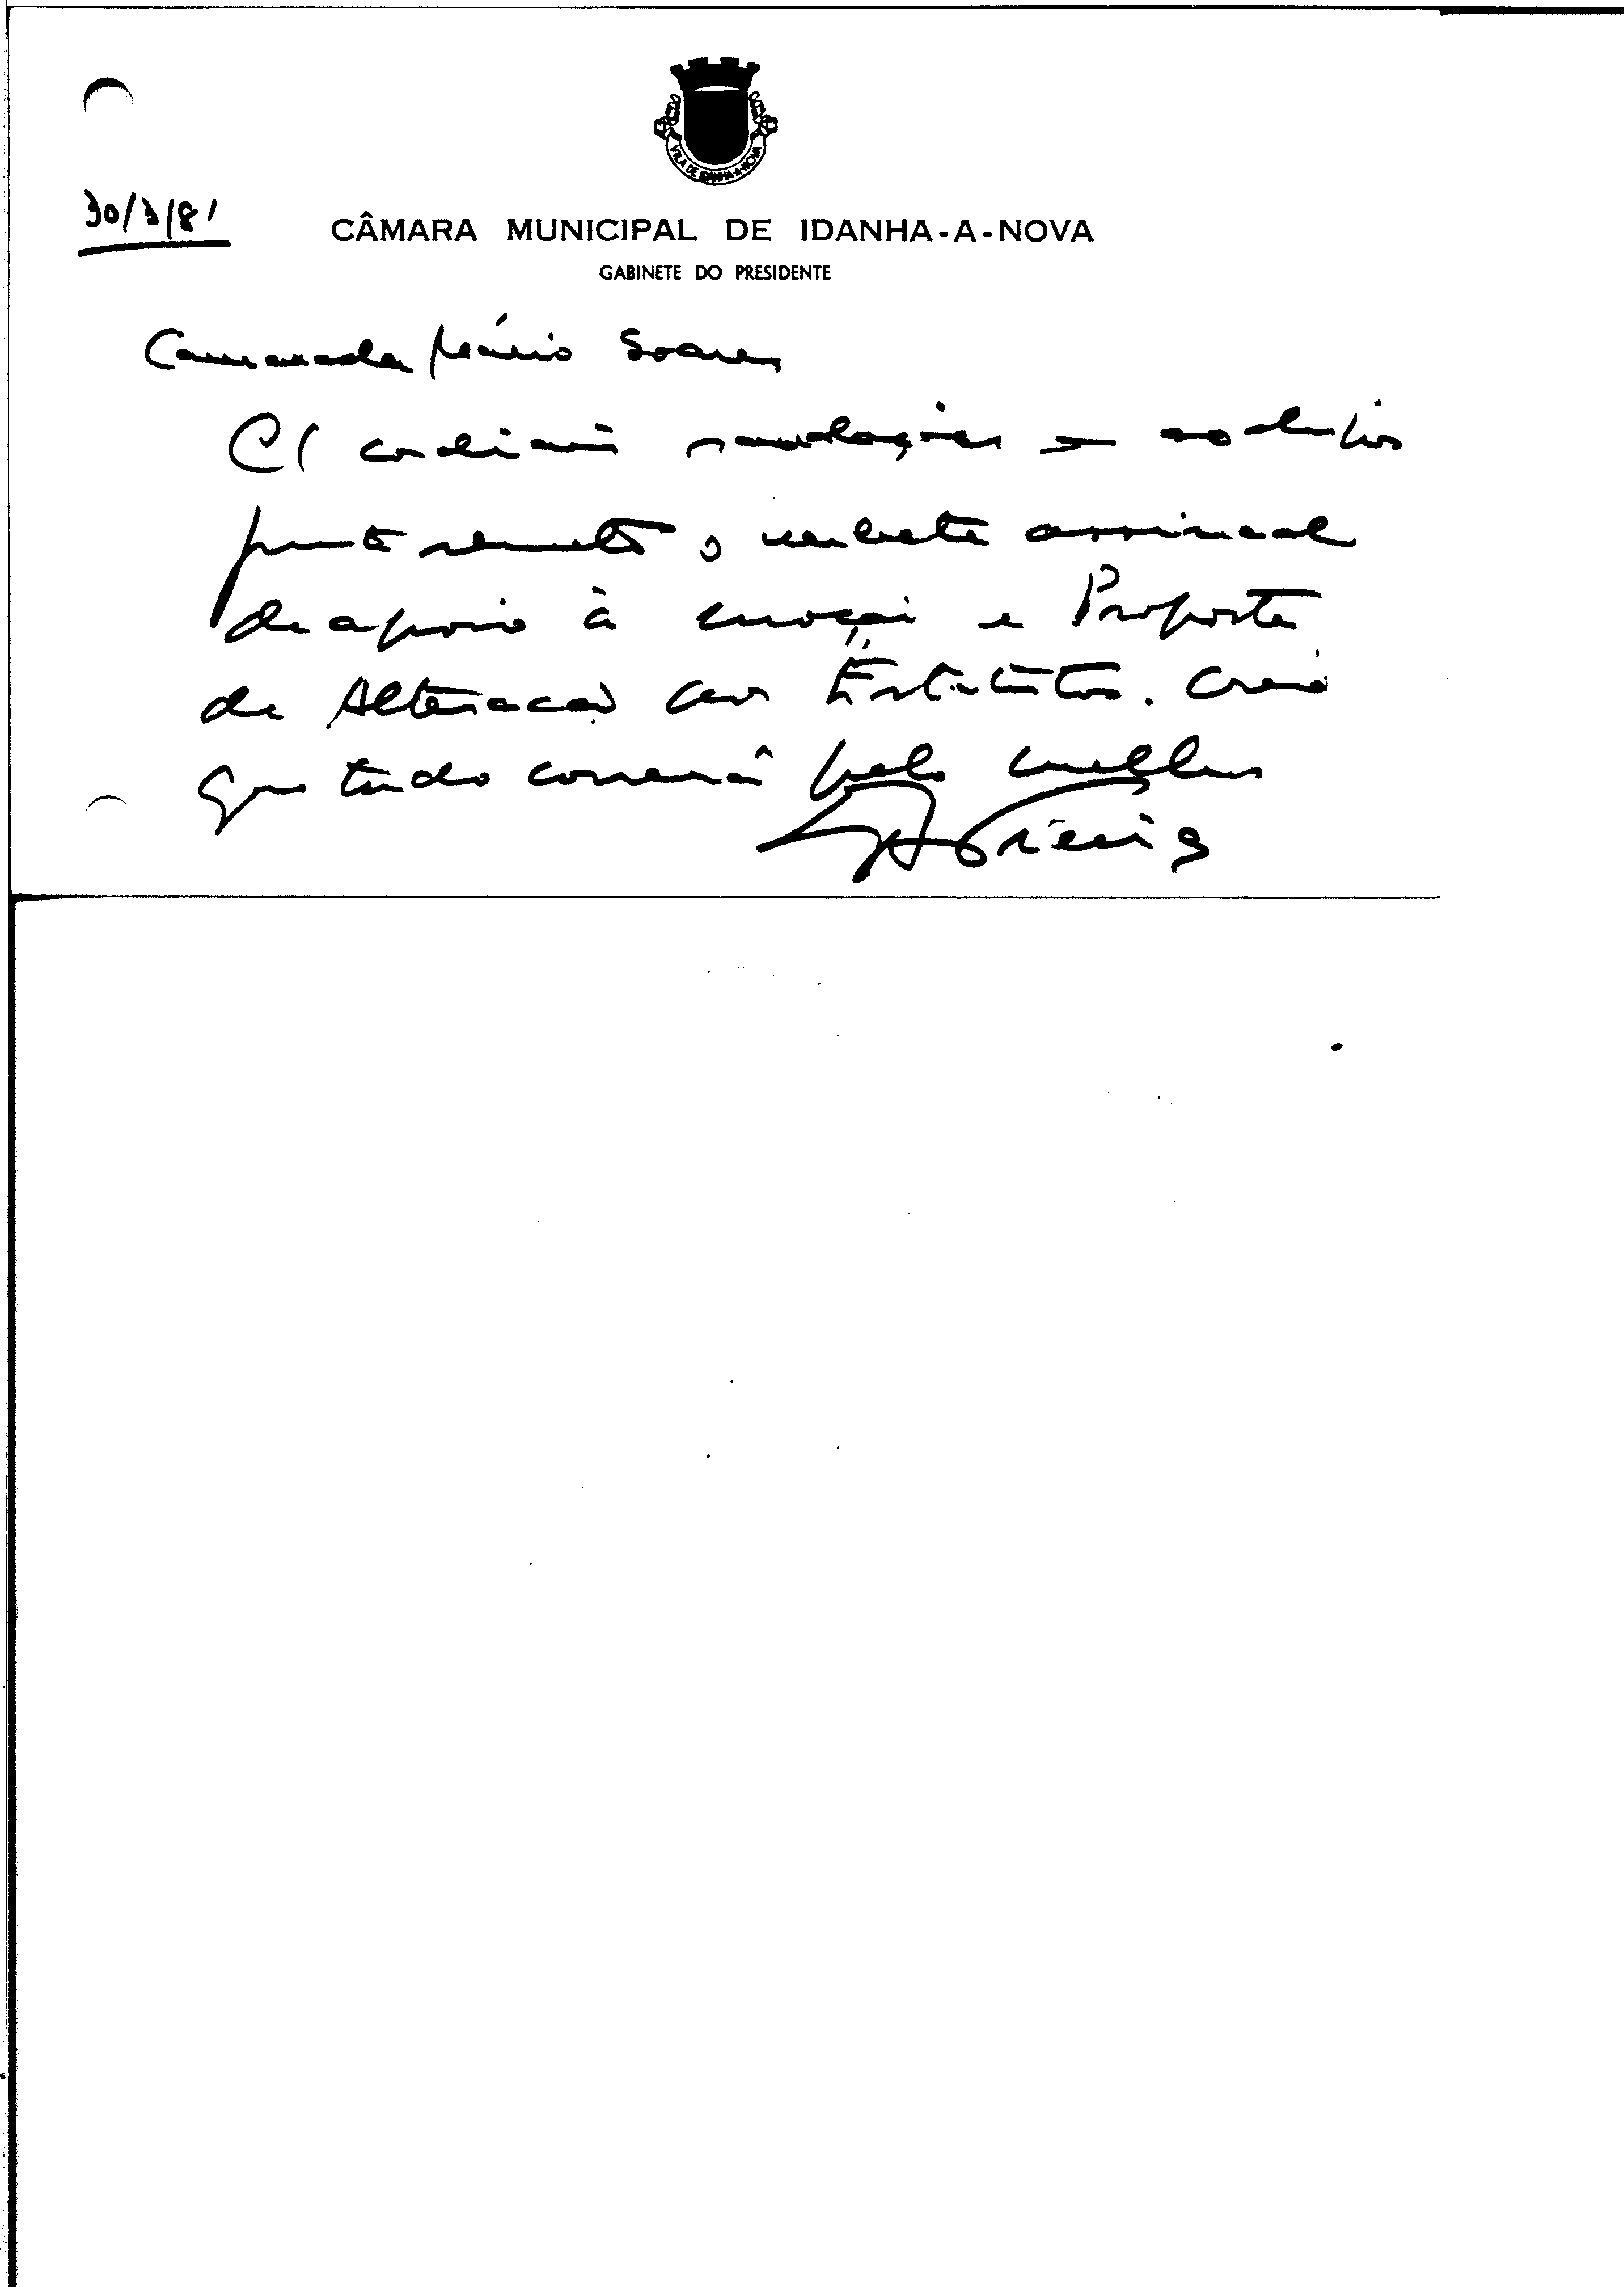 VILA DE IDANHA-A-NOVA
30/3/81
CÂMARA MUNICIPAL DE IDANHA-A-NOVA
GABINETE DO PRESIDENTE
Camarada Mário Soares
C/ cordiais saudações e ao dispor
junto remeto o verbete assinado
de apoio à moção e Proposta
de Alteração aos Estatutos. Creio
que tudo correrá pelo melhor